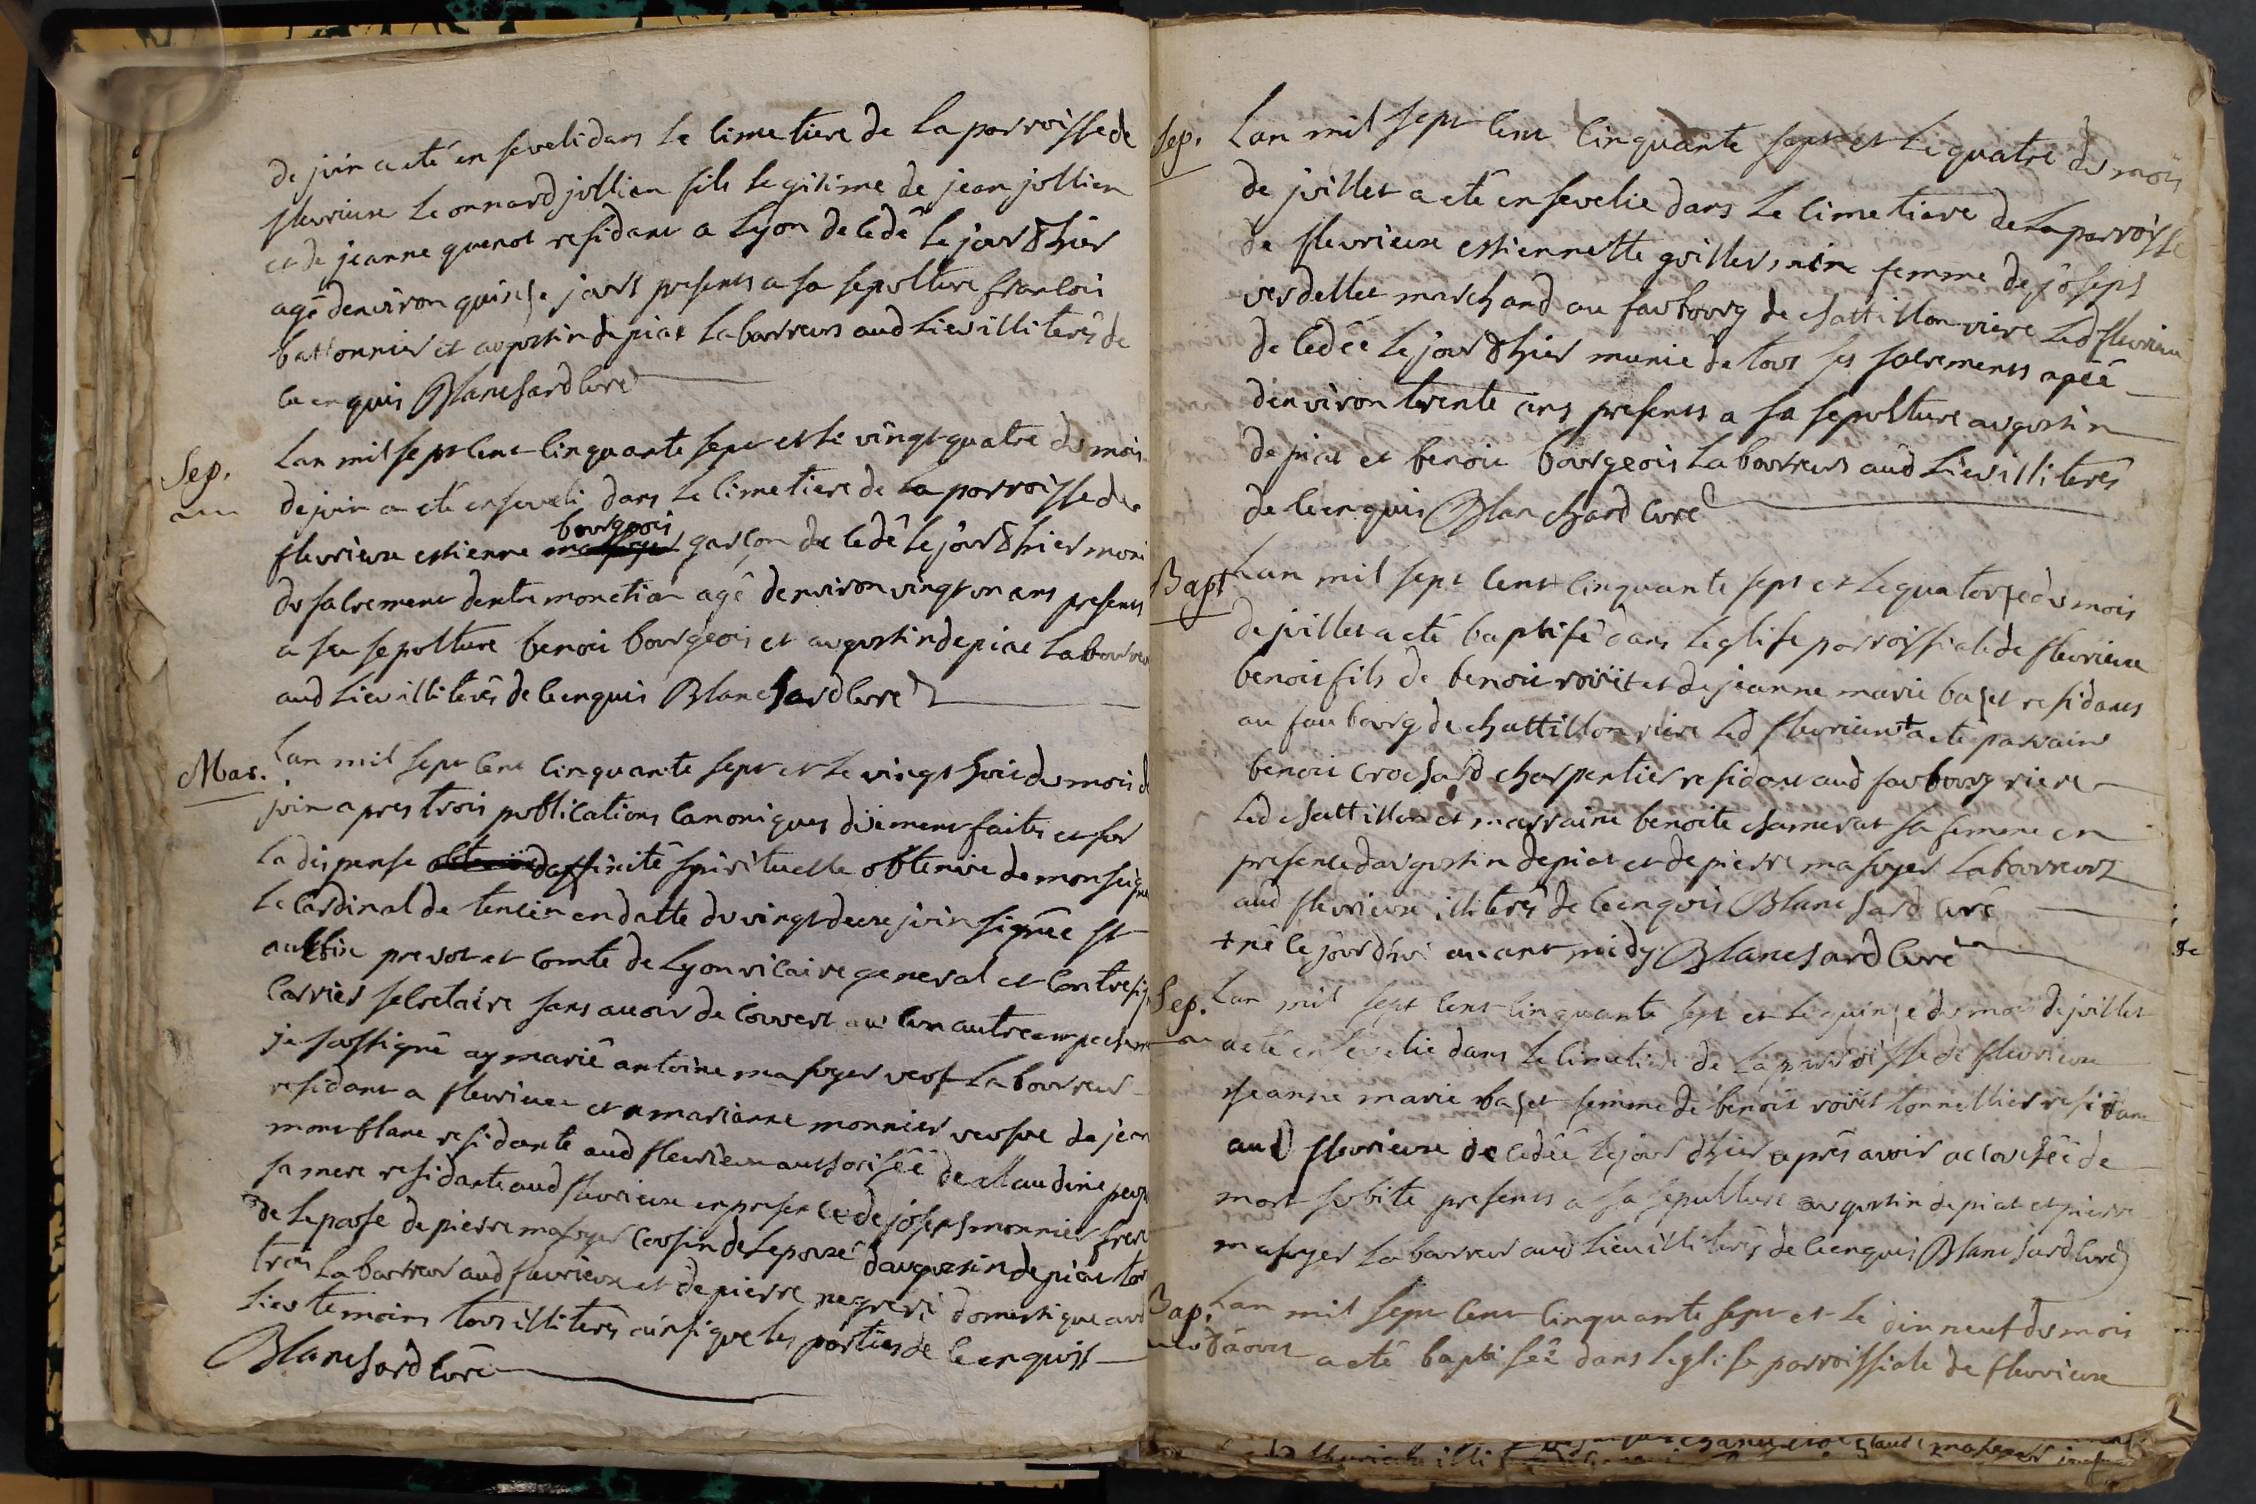 de juin a eté enseveli dans le cimetiere de la parroisse de
fleurieux Leonnard jullien fils legitime de jean jullien
et de jeanne quenot residant a Lyon decedé le jour d'hier
agé denviron quinse jours presents a sa sepulture francois
battonnier et augustin depiat Laboureurs aud Lieu illiterés de
ce enquis Blanchard Curé
Sep.
Lan mil sept cent cinquante sept et le vingt-quatre du mois
de juin a eté enseveli dans le cimetiere de la parroisse de
bourgeois
fleurieux estienne garcon decedé le jour d'hier muni
du sacrement dextremonction agé denviron vingt un ans presents
a sa sepulture benoit bourgeois et augustin depiat Laboureu
aud Lieu illiterés de ce enquis Blanchard Curé
Mar.
Lan mil sept cent cinquante sept et le vingt huit du mois d
juin apres trois publications canoniques düement faites et sur
la dispense daffinité spirituelle obtenüe de monseigne
Le Cardinal de tencin en datte du vingt deux juin signée St
aulbin prevot et comte de Lyon vicaire general et contresig
Carrier secretaire sans avoir decouvert aucun autre empecheme
je soussigné ay marié antoine masuyer veuf Laboureur
residant a fleurieux et marianne monnier veusve de jean
montblanc residante aud fleurieux authorisée de Claudine
sa mere residante aud fleurieux en presence de joseph monnier frere
de Lepouse de pierre masuyer cousin de Lepoux daugustin depiat tou
trois Laboureur aud fleurieux et de pierre negreri domestique aud
Lieu temoins tous illiterés ainsi que les parties de ce enquis
Blanchard Curé
Sep.
Lan mil sept cent cinquante sept et le quatre du mois
de juillet a eté ensevelie dans le cimetiere de la parroisse
de fleurieux estiennette guillermin femme de joseph
verdellet marchand au fauxbourg de chattillon riere led fleurieu
decedée le jour d'hier munie de tous ses sacrements agée
denviron trente ans presents a sa sepulture augustin
depiat et benoit bourgeois Laboureurs aud Lieu illiterés
de ce enquis Blanchard Curé
Bapt
Lan mil sept cent cinquante sept et le quatorze du mois
de juillet a eté baptisé dans leglise parroissiale de fleurieux
benoit fils de benoit roüit et de jeanne marie baset residants
au fauxbourg de chattillon riere led fleurieux + a eté parrain
benoit crochard charpentier residant aud fauxbourg riere
Led chattillon et marraine benoite chamerat sa femme en
presence daugustin depiat et de pierre masuyer Laboureurs
aud fleurieux illiterés de ce enquis Blanchard Curé
+ né le jour d'hui avant midy Blanchard Curé
Sep.
Lan mil sept cent cinquante sept et le quinze du mois de juillet
a eté ensevelie dans le cimetiere de la parroisse de fleurieux
jeanne marie baset femme de benoit roüit tonnellier residant
aud fleurieux decedée le jour d'hier aprés avoir accouchée de
mort subite presents a sa sepulture augustin depiat et pierre
masuyer Laboureur aud Lieu illiterés de ce enquis Blanchard Curé
Bap.
Lan mil sept cent cinquante sept et le dix neuf du mois
d'aoust a eté baptisée dans leglise parroissiale de fleurieux